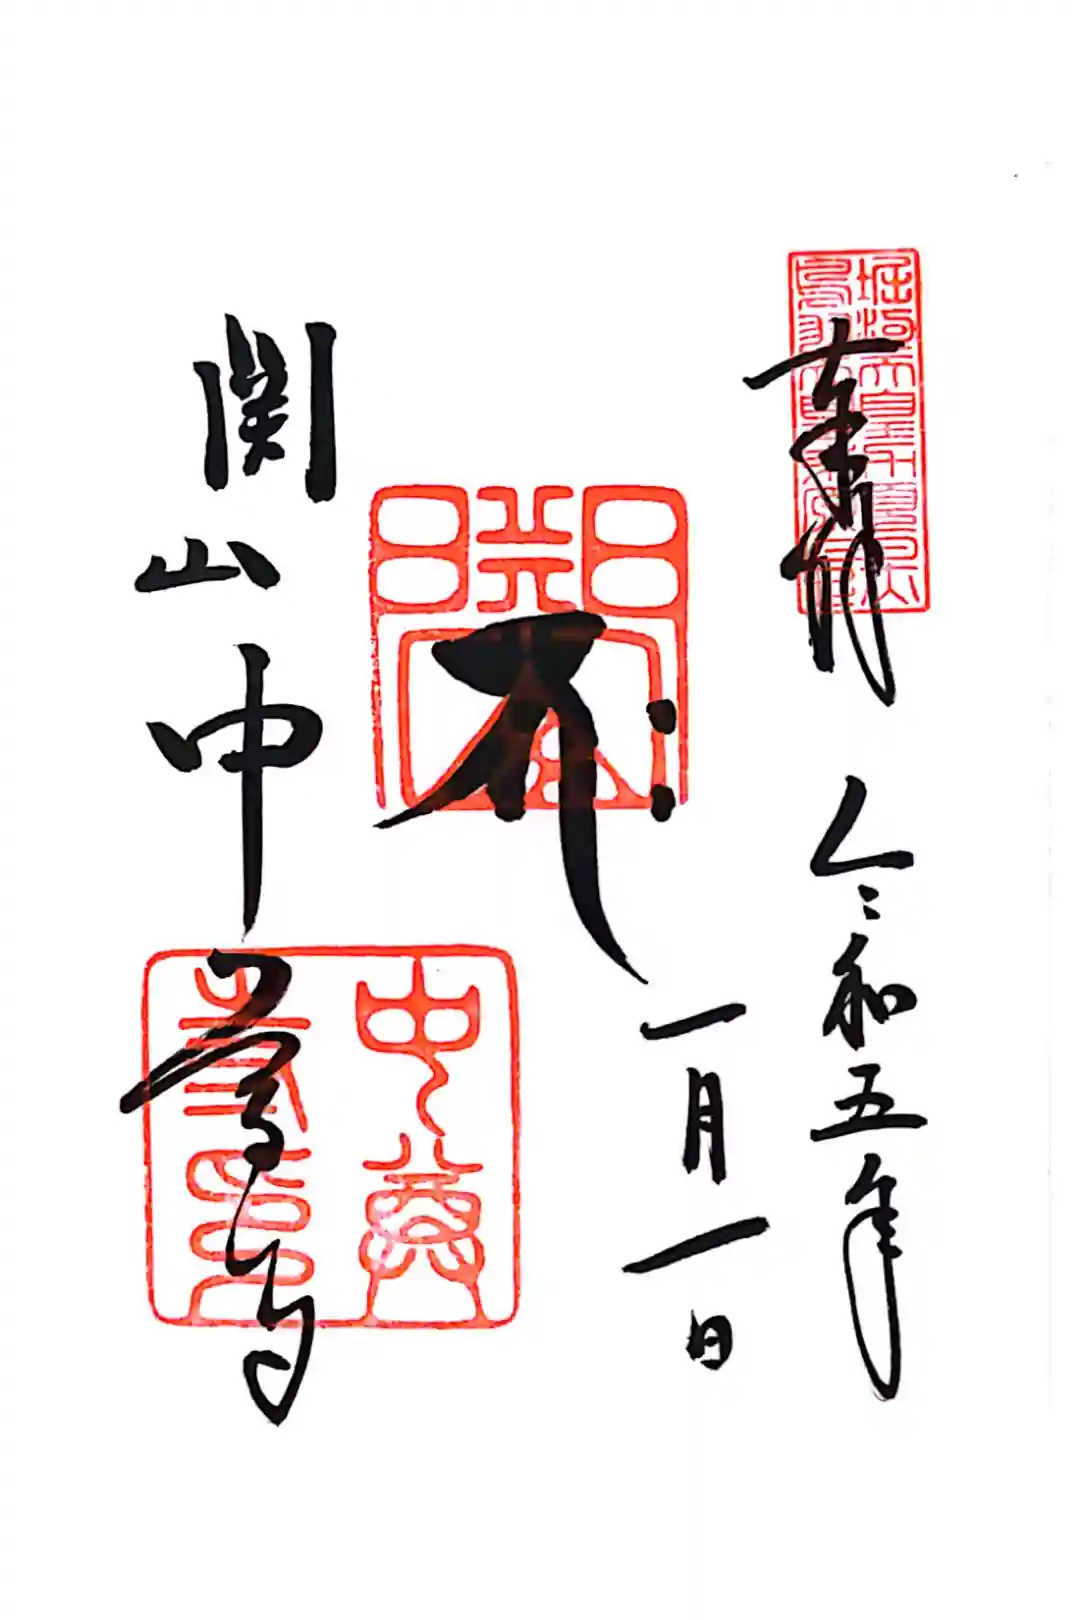 奉拝
令和五年
一月一日
関山中尊寺
中尊
寺印